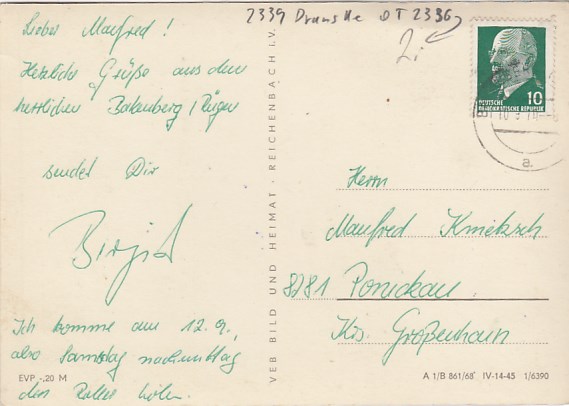 2339 Dranske DT 2336
Lieber Manfred!
Herzliche Grüße aus dem
herrlichen Bakenberg/Rügen
sendet Dir
Birgit
Ich komme am 12.9.
also Samstag nachmittag
den Roller holen.
EVP -,20 M
VEB BILD UND HEIMAT · REICHENBACH I. V.
10
DEUTSCHE
DEMOKRATISCHE REPUBLIK
a
Herrn
Manfred
8281 Ponickau
Krs. Großenhain
A 1/B 861/68 IV-14-45 1/6390